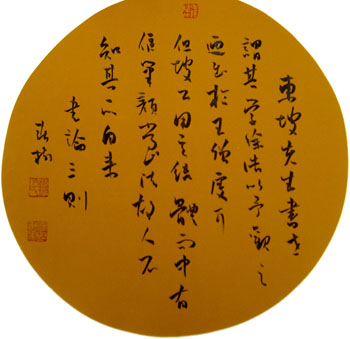 東坡先生書世
謂其學徐浩以予觀之
迺出於王僧虔耳
但坡公用其結體而中有
偃筆顏常山法故人不
知其所自来
書論三則